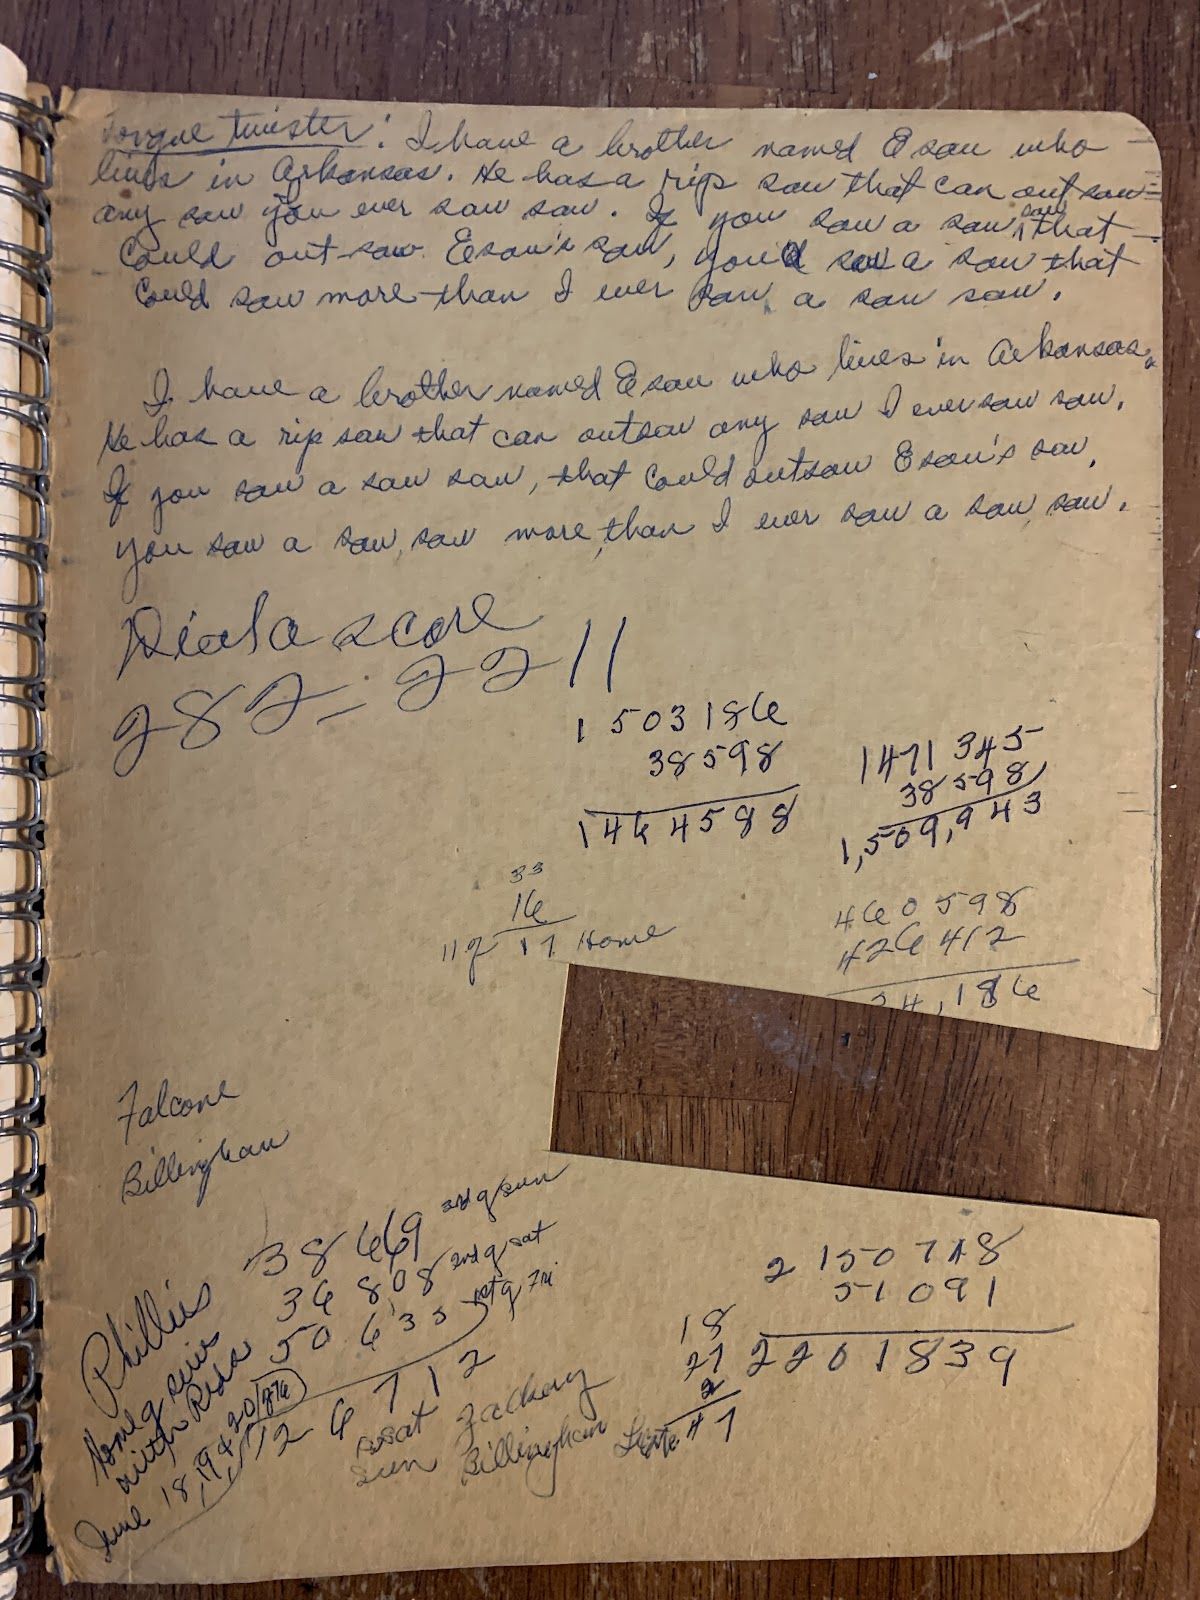 Tongue twister: I have a brother named Esau who
lives in Arkansas. He has a rip saw that can out saw
any saw you ever saw saw. If you saw a saw saw that
could out-saw Esau's saw, you'd saw a saw that
could saw more than I ever saw a saw saw.
I have a brother named Esau who lives in Arkansas.
He has a rip saw that can outsaw any saw I ever saw saw.
If you saw a saw saw, that could outsaw Esau's saw,
you saw a saw saw more than I ever saw a saw saw.
Dial a score
282-2211
1503186
38598
1464588
1471345
38598
1,509,943
33
16
11 g 17 Home
460598
426412
34,186
Falcone
Billingham
Phillies
Home g series
with Reds
June 18, 19 & 20/1876
38669 3rd g sun
36808 2nd g sat
50635 1st g Fri
126712
sat Zachary
sun Billingham
2150748
51091
2201839
18
27
2
47